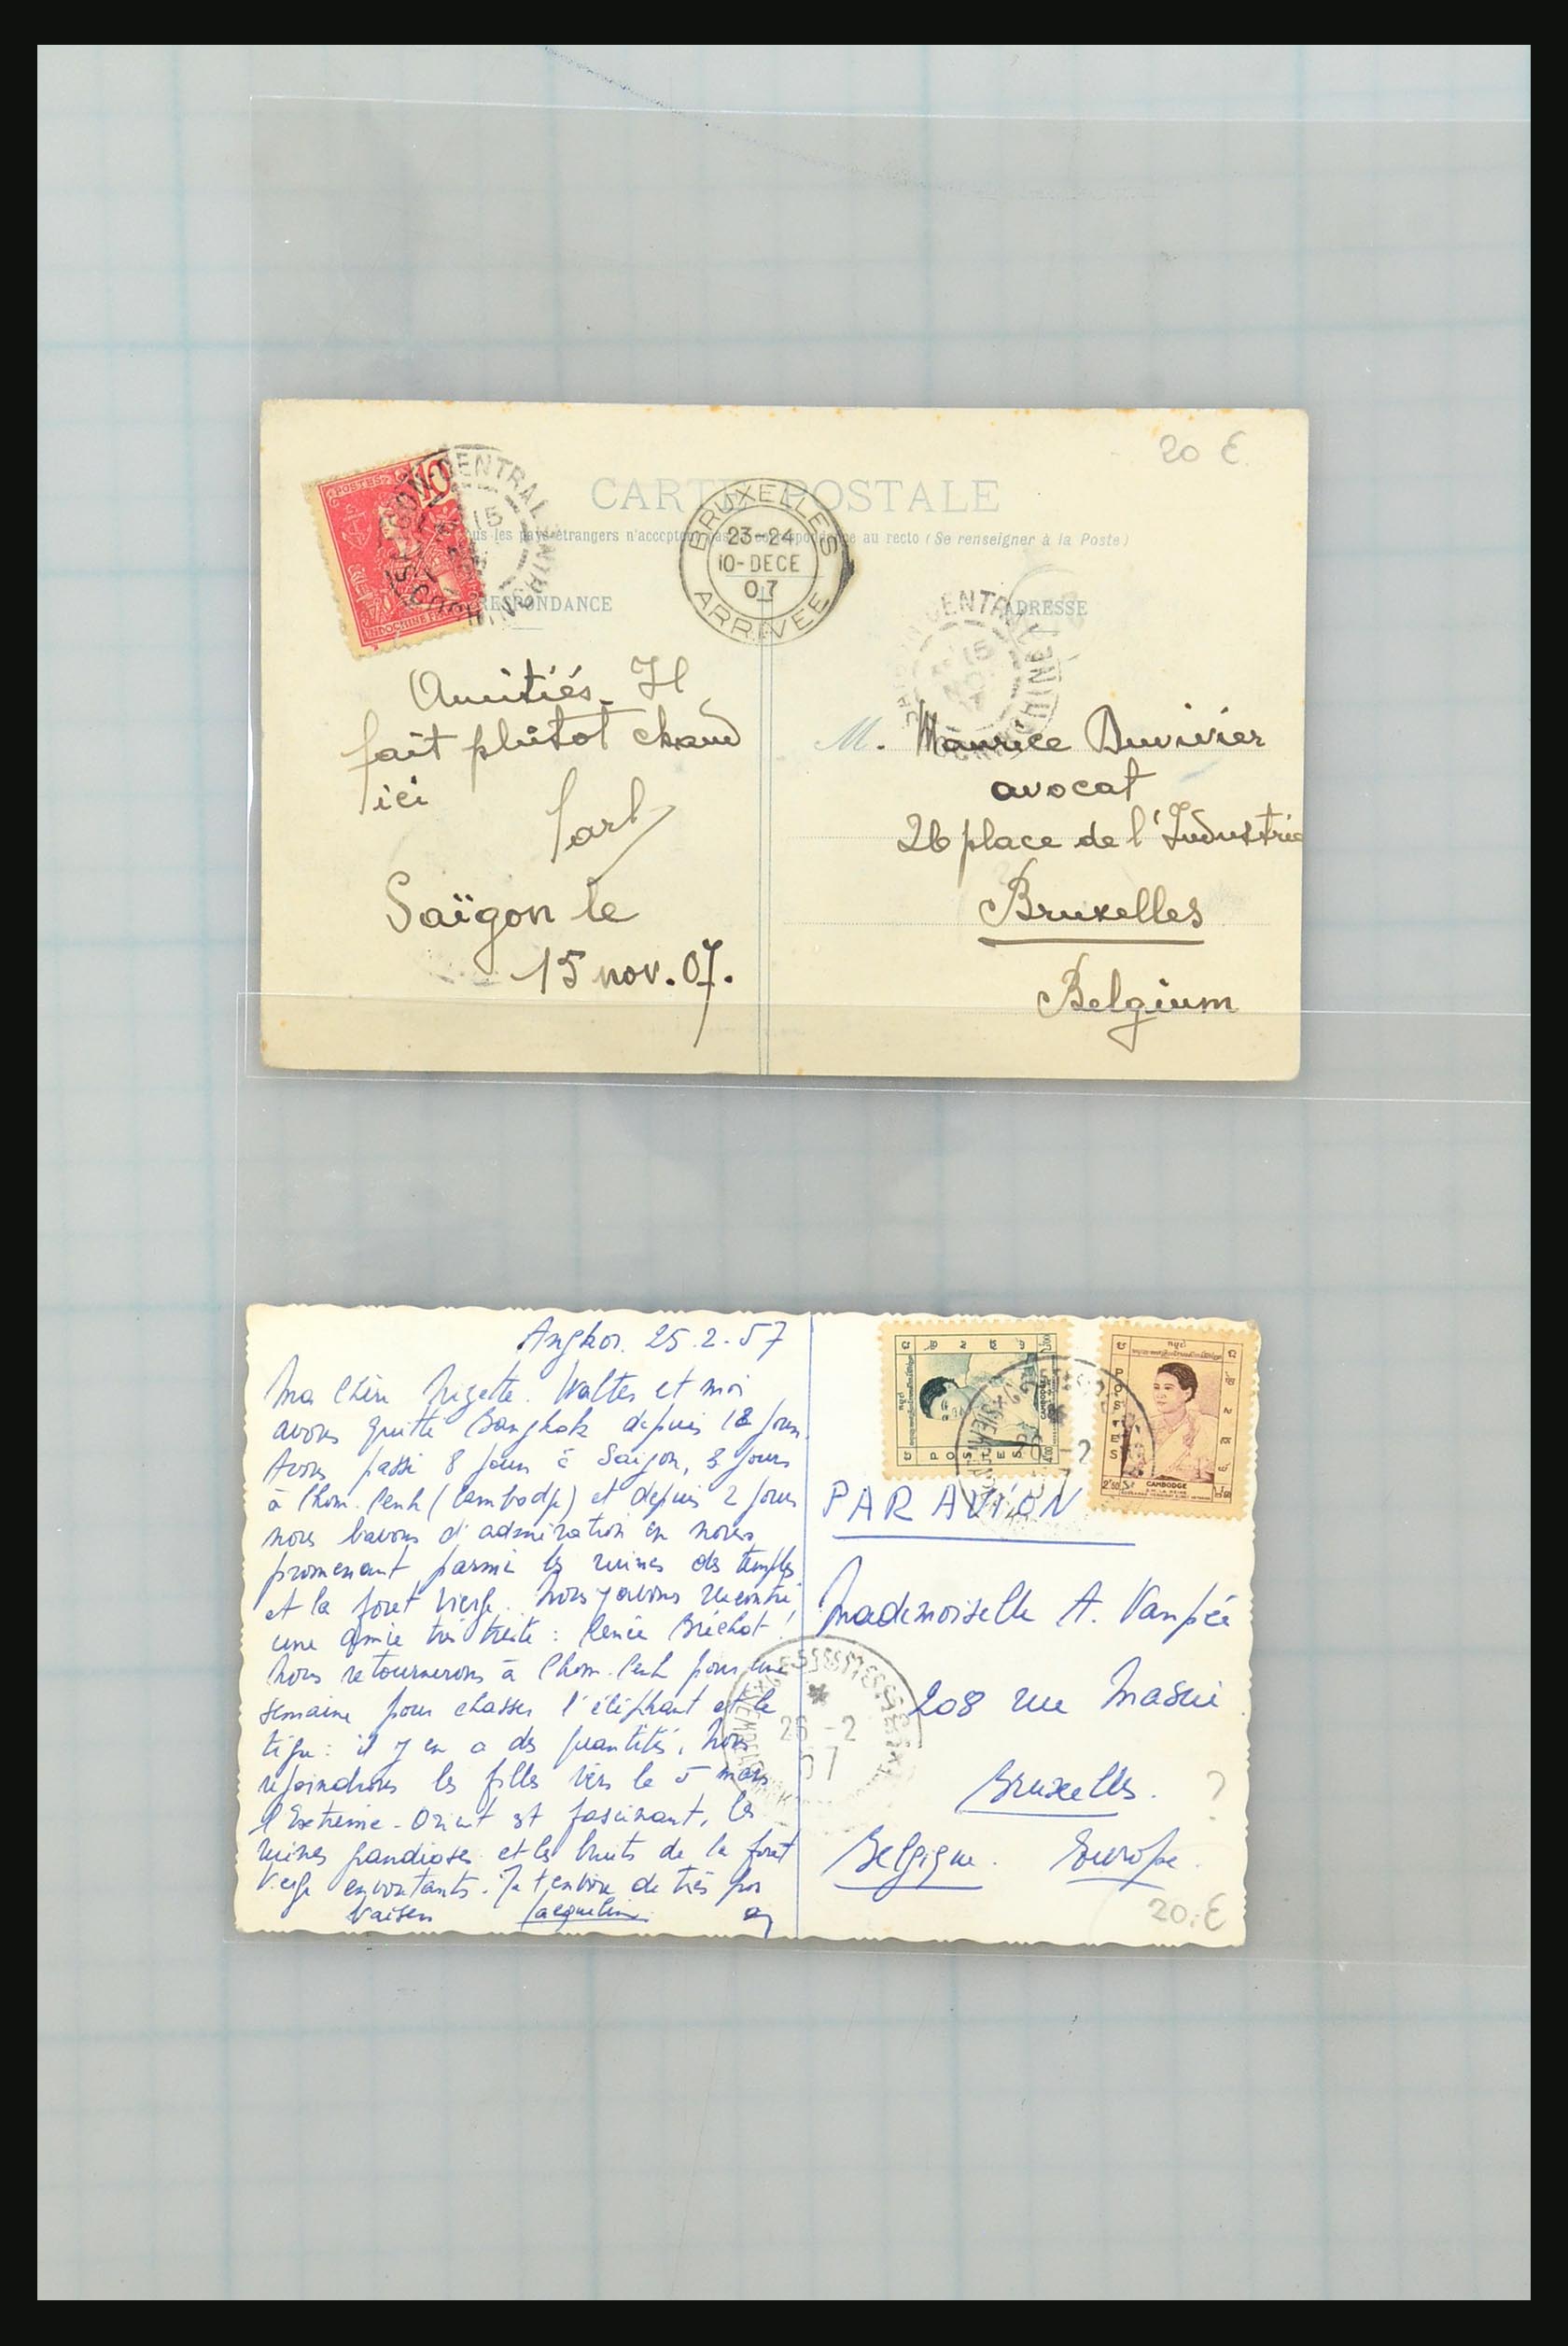 20 €
CARTE POSTALE
us les pays étrangers n'acceptent pas la correspondance au recto (Se renseigner à la Poste)
POSTES
10
INDOCHINE
SAIGON-CENTRAL
15
BRUXELLES
23-24
10-DECE
07
ARRIVÉE
RESPONDANCE
ADRESSE
CENTRAL
15
Amitiés. Il
fait plutôt chaud
ici
Saïgon le
15 nov. 07.
M. Maurice Duvivier
avocat
26 place de l'Industrie
Bruxelles
Belgium
Angkor. 25.2.57
Ma Chère Walter et moi
avons quitté Bangkok depuis 12 jours.
Avons passé 8 jours à Saïgon, 2 jours
à Phom-Penh (Cambodge) et depuis 2 jours
nous bavons d'admiration en nous
promenant parmi les ruines des temples
et la foret vierge. Nous y avons rencontré
une amie très triste : Renée Bréchot !
Nous retournerons à Phom-Penh pour une
semaine pour chasser l'éléphant et le
tigre : il y en a des quantités. Nous
rejoindrons les filles vers le 5 mars
l'Extrême-Orient est fascinant, les
ruines grandioses et les bruits de la foret
vierge envoutants. Je t'envoie de très gros
baisers Jacqueline
POSTES
CAMBODGE
POSTES
2$50
CAMBODGE
PAR AVION
26-2
57
Mademoiselle A. Vanpée
208 rue Masui
Bruxelles. ?
Belgique. Europe.
20,-€